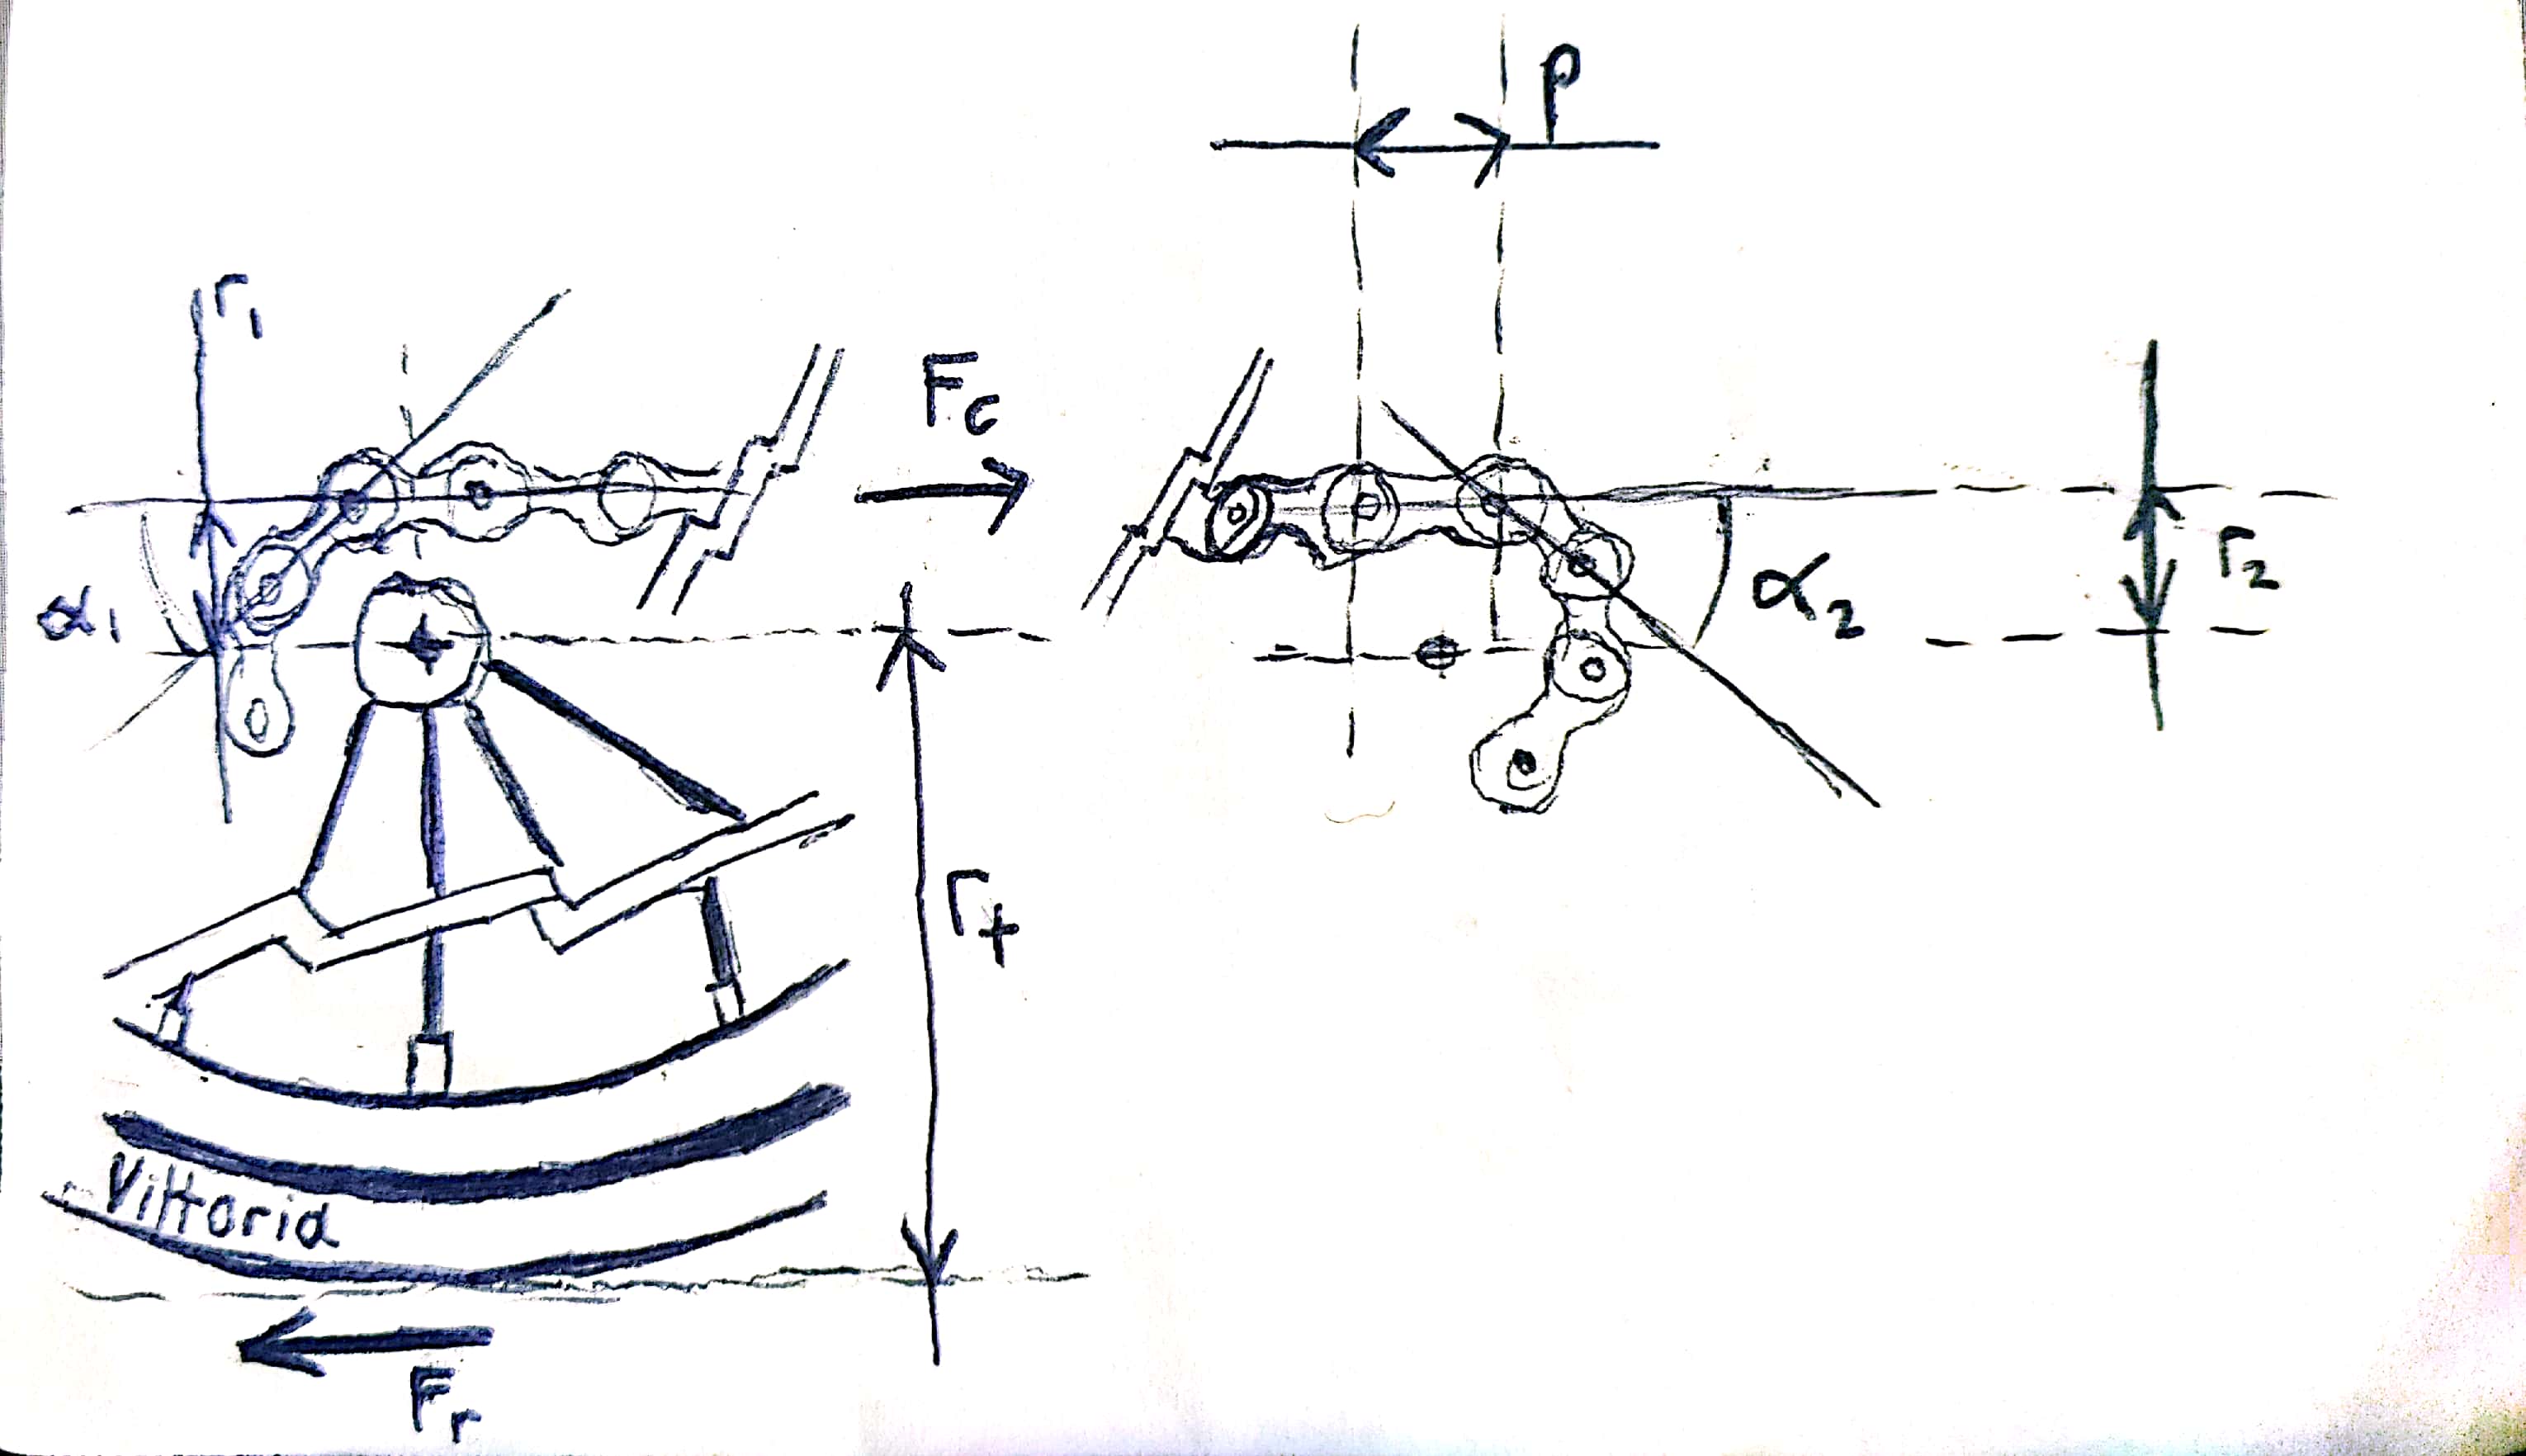 P
r₁
F_c
α₁
α₂
r₂
r_t
Vittoria
F_r